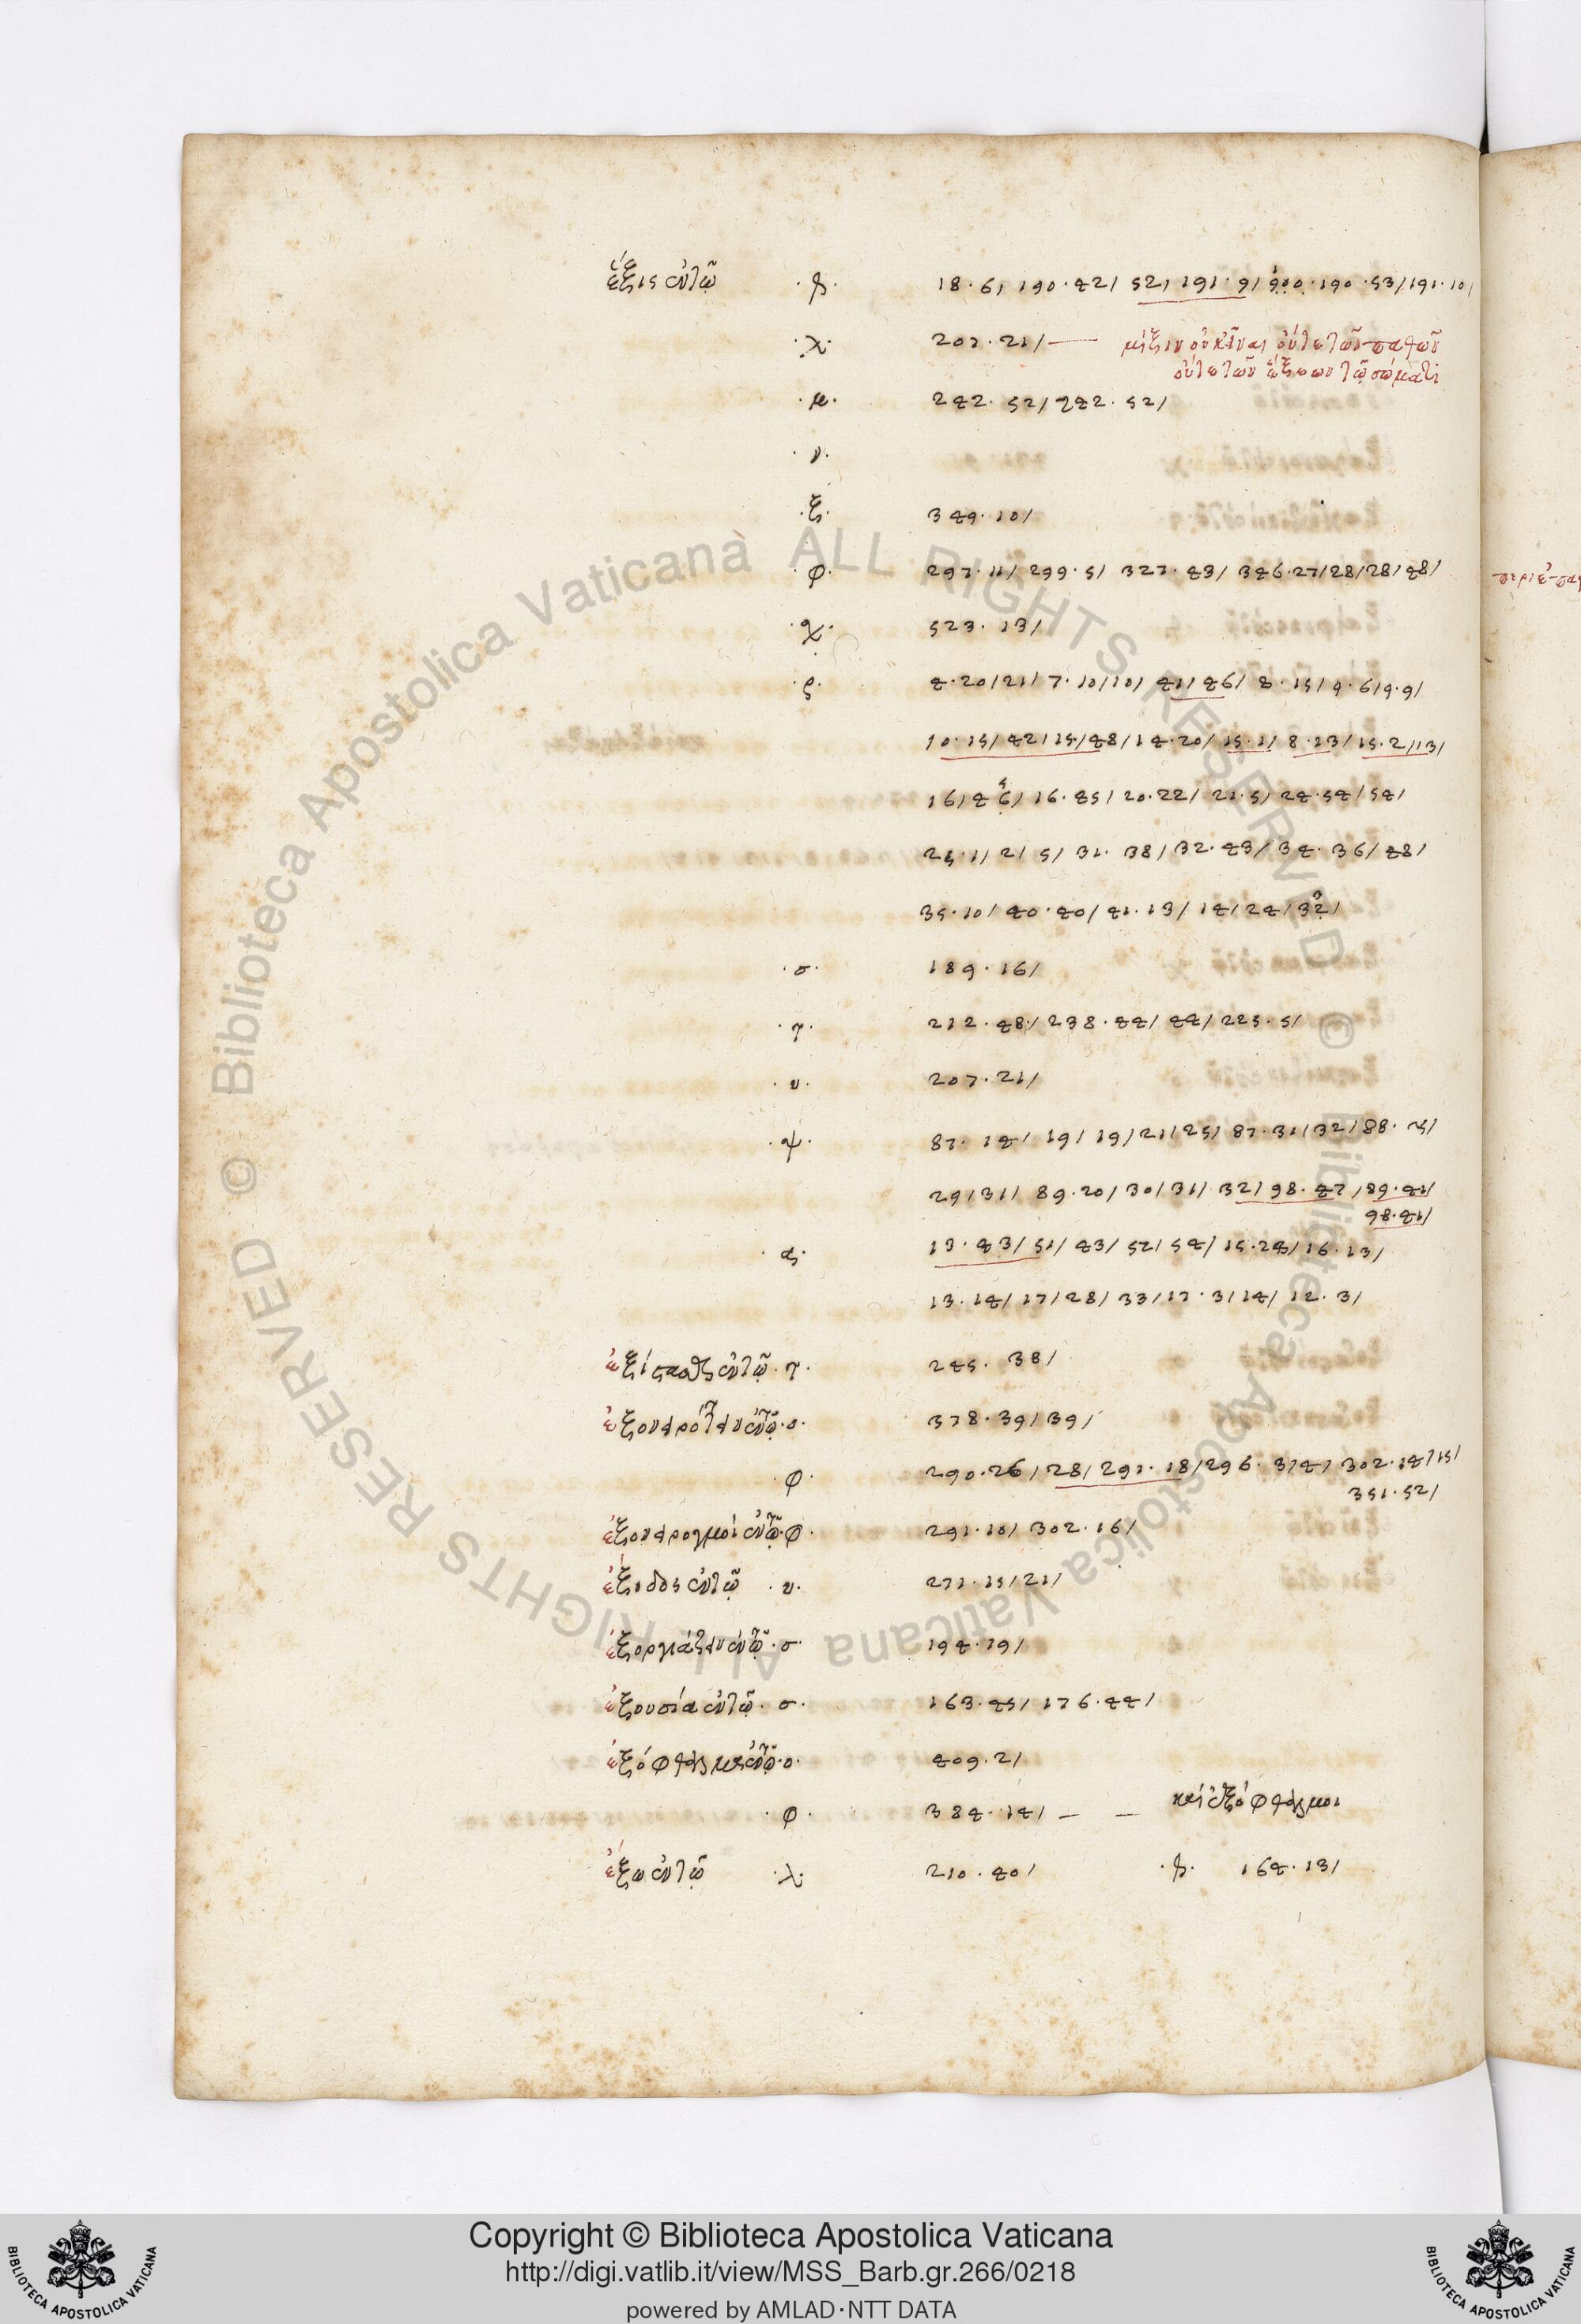 ἕξις ἐν τῷ ·β· 18·6/ 190·42/ 52/ 191·9/ 190·53/ 191·10/
·λ· 207·21/ — μίξιν οὐκ εἶναι οὔτε τῶν παθῶν
οὔτε τῶν ἕξεων τῷ σώματι
·μ· 242·52/ 242·52/
·ν·
·ξ· 349·10/
·φ· 297·11/ 299·5/ 327·43/ 346·27/28/28/48/
·χ· 523·13/
·ς· 4·20/21/ 7·10/10/ 41/46/ 8·15/ 9·6/9·9/
10·15/42/15/48/14·20/15·1/ 8·13/15·2/13/
16/4 6/ 16·45/ 20·22/ 21·5/ 24·54/54/
25·1/2/5/ 31·38/ 32·43/ 34·36/48/
35·10/ 40·40/ 41·13/ 14/24/32/
·σ· 189·16/
·τ· 212·48/ 238·44/ 44/ 225·5/
·υ· 207·21/
·ψ· 87·14/ 19/ 19/21/25/ 87·31/32/88·
29/31/ 89·20/30/31/ 32/98·47/89·41/
98·41/
13·43/51/ 43/ 52/54/ 15·24/16·13/
13·14/17/28/33/17·3/14/ 12·3/
ἐν τῷ ·τ· 245·38/
·ο· 378·39/39/
·φ· 290·26/28/291·18/296·3/4/ 302·14/15/
351·52/
ἐν τῷ ·φ· 291·10/ 302·16/
ἔξοδος ἐν τῷ ·υ· 271·15/21/
ἐξοργιάζειν ἐν τῷ ·σ· 194·19/
ἐξουσία ἐν τῷ ·σ· 163·45/ 176·44/
ἐξόφθαλμος ἐν τῷ ·ο· 409·2/
·φ· 384·14/ — — καὶ ἐξόφθαλμοι
ἔξω ἐν τῷ ·λ· 210·40/ ·β· 164·13/
© Biblioteca Apostolica Vaticana ALL RIGHTS RESERVED © Biblioteca Apostolica Vaticana ALL RIGHTS RESERVED
Copyright © Biblioteca Apostolica Vaticana
http://digi.vatlib.it/view/MSS_Barb.gr.266/0218
powered by AMLAD·NTT DATA
BIBLIOTECA APOSTOLICA VATICANA
BIBLIOTECA APOSTOLICA VATICANA